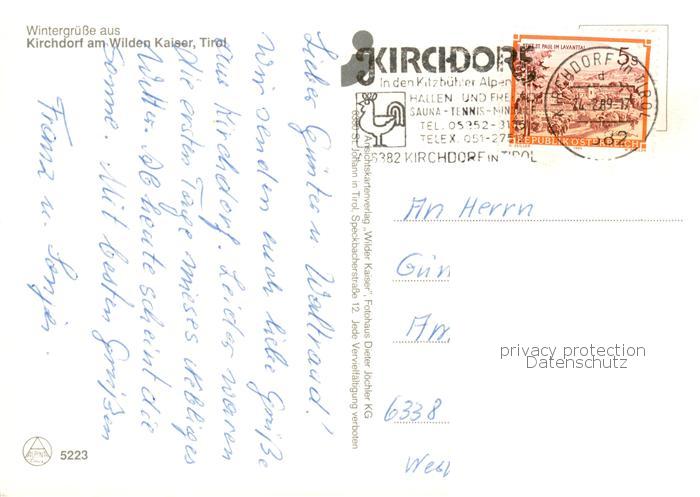 Wintergrüße aus
Kirchdorf am Wilden Kaiser, Tirol
Lieber Günter u. Waltraud!
Wir senden euch liebe Grüße
aus Kirchdorf. Leider waren
die ersten Tage mieses nebliges
Wetter. Ab heute scheint die
Sonne. Mit besten Grüßen
Franz u. Sonja.
5223
Ansichtskartenverlag „Wilder Kaiser", Fotohaus Dieter Jöchler KG
6380 St. Johann in Tirol, Speckbacherstraße 12. Jede Vervielfältigung verboten
KIRCHDORF
In den Kitzbühler Alpen
HALLEN UND FREI
SAUNA - TENNIS - MIN
TEL. 05352-31
TELEX. 051-275
6382 KIRCHDORF IN TIROL
STIFT ST. PAUL IM LAVANTTAL
5s
REPUBLIK ÖSTERREICH
KIRCHDORF IN TIROL
24.-2.89-17
6382
An Herrn
Gün
Am
6338
privacy protection
Datenschutz